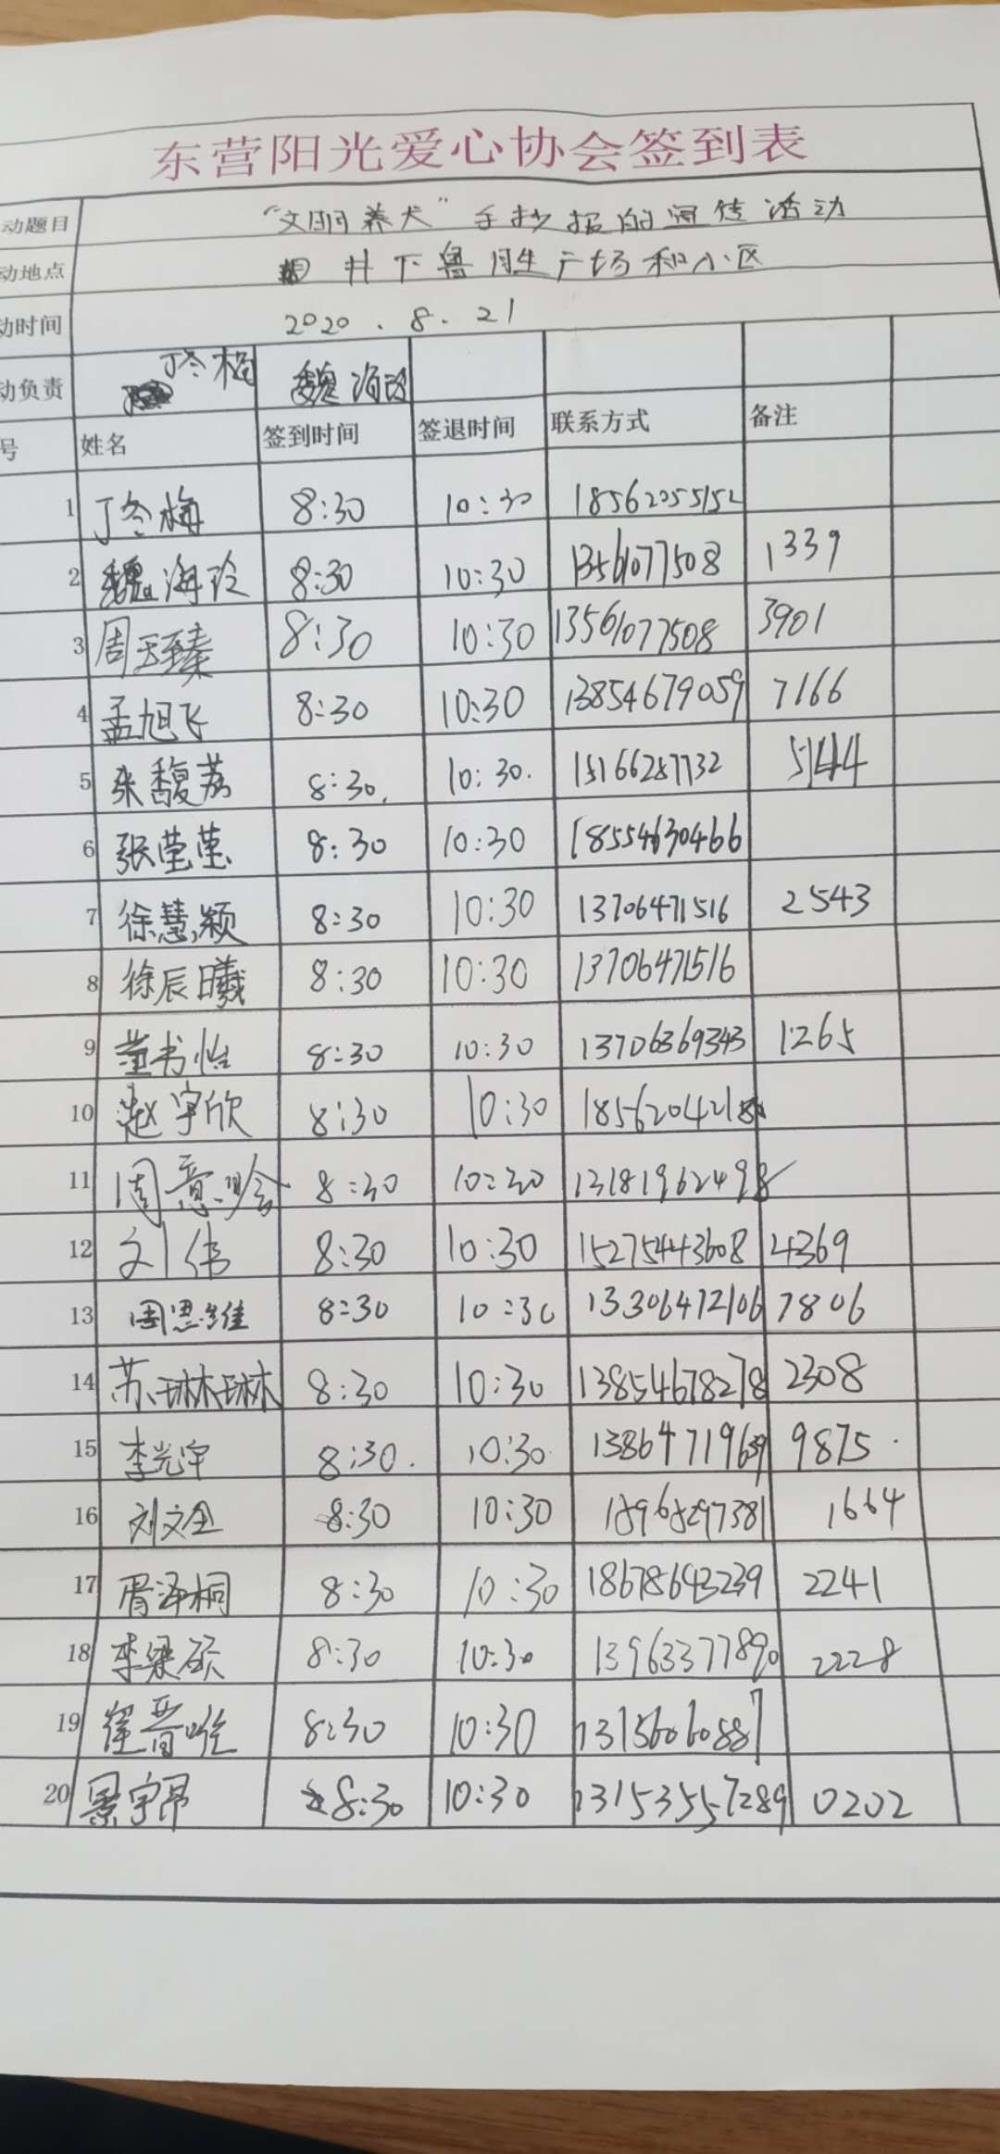 东营阳光爱心协会签到表
动题目 "文明养犬"手抄报的宣传活动
动地点 井下鲁胜广场和小区
动时间 2020.8.21
动负责 丁冬梅 魏海玲
号 姓名 签到时间 签退时间 联系方式 备注
1 丁冬梅 8:30 10:30 18562055152
2 魏海玲 8:30 10:30 13561077508 1339
3 周玉臻 8:30 10:30 13561077508 3901
4 孟旭飞 8:30 10:30 13854679059 7166
5 朱馥荔 8:30. 10:30. 15166287732 5144
6 张莹莹 8:30 10:30 18554630466
7 徐慧颖 8:30 10:30 13706471516 2543
8 徐辰曦 8:30 10:30 13706471516
9 董书怡 8:30 10:30 13706369343 1265
10 赵宇欣 8:30 10:30
11 周意晗 8:30 10:30 13181962498
12 刘伟 8:30 10:30 15275443608 4369
13 周思维 8:30 10:30 13306472106 7806
14 苏琳琳 8:30 10:30 13854678278 2308
15 李光宇 8:30. 10:30 13864711969 9875
16 刘文全 8:30 10:30 1664
17 胥泽桐 8:30 10:30 18678643239 2241
18 李梁硕 8:30 10:30 13963377890 2228
19 崔晋 8:30 10:30 13156060887
20 景宇昂 8:30 10:30 13153557289 0202